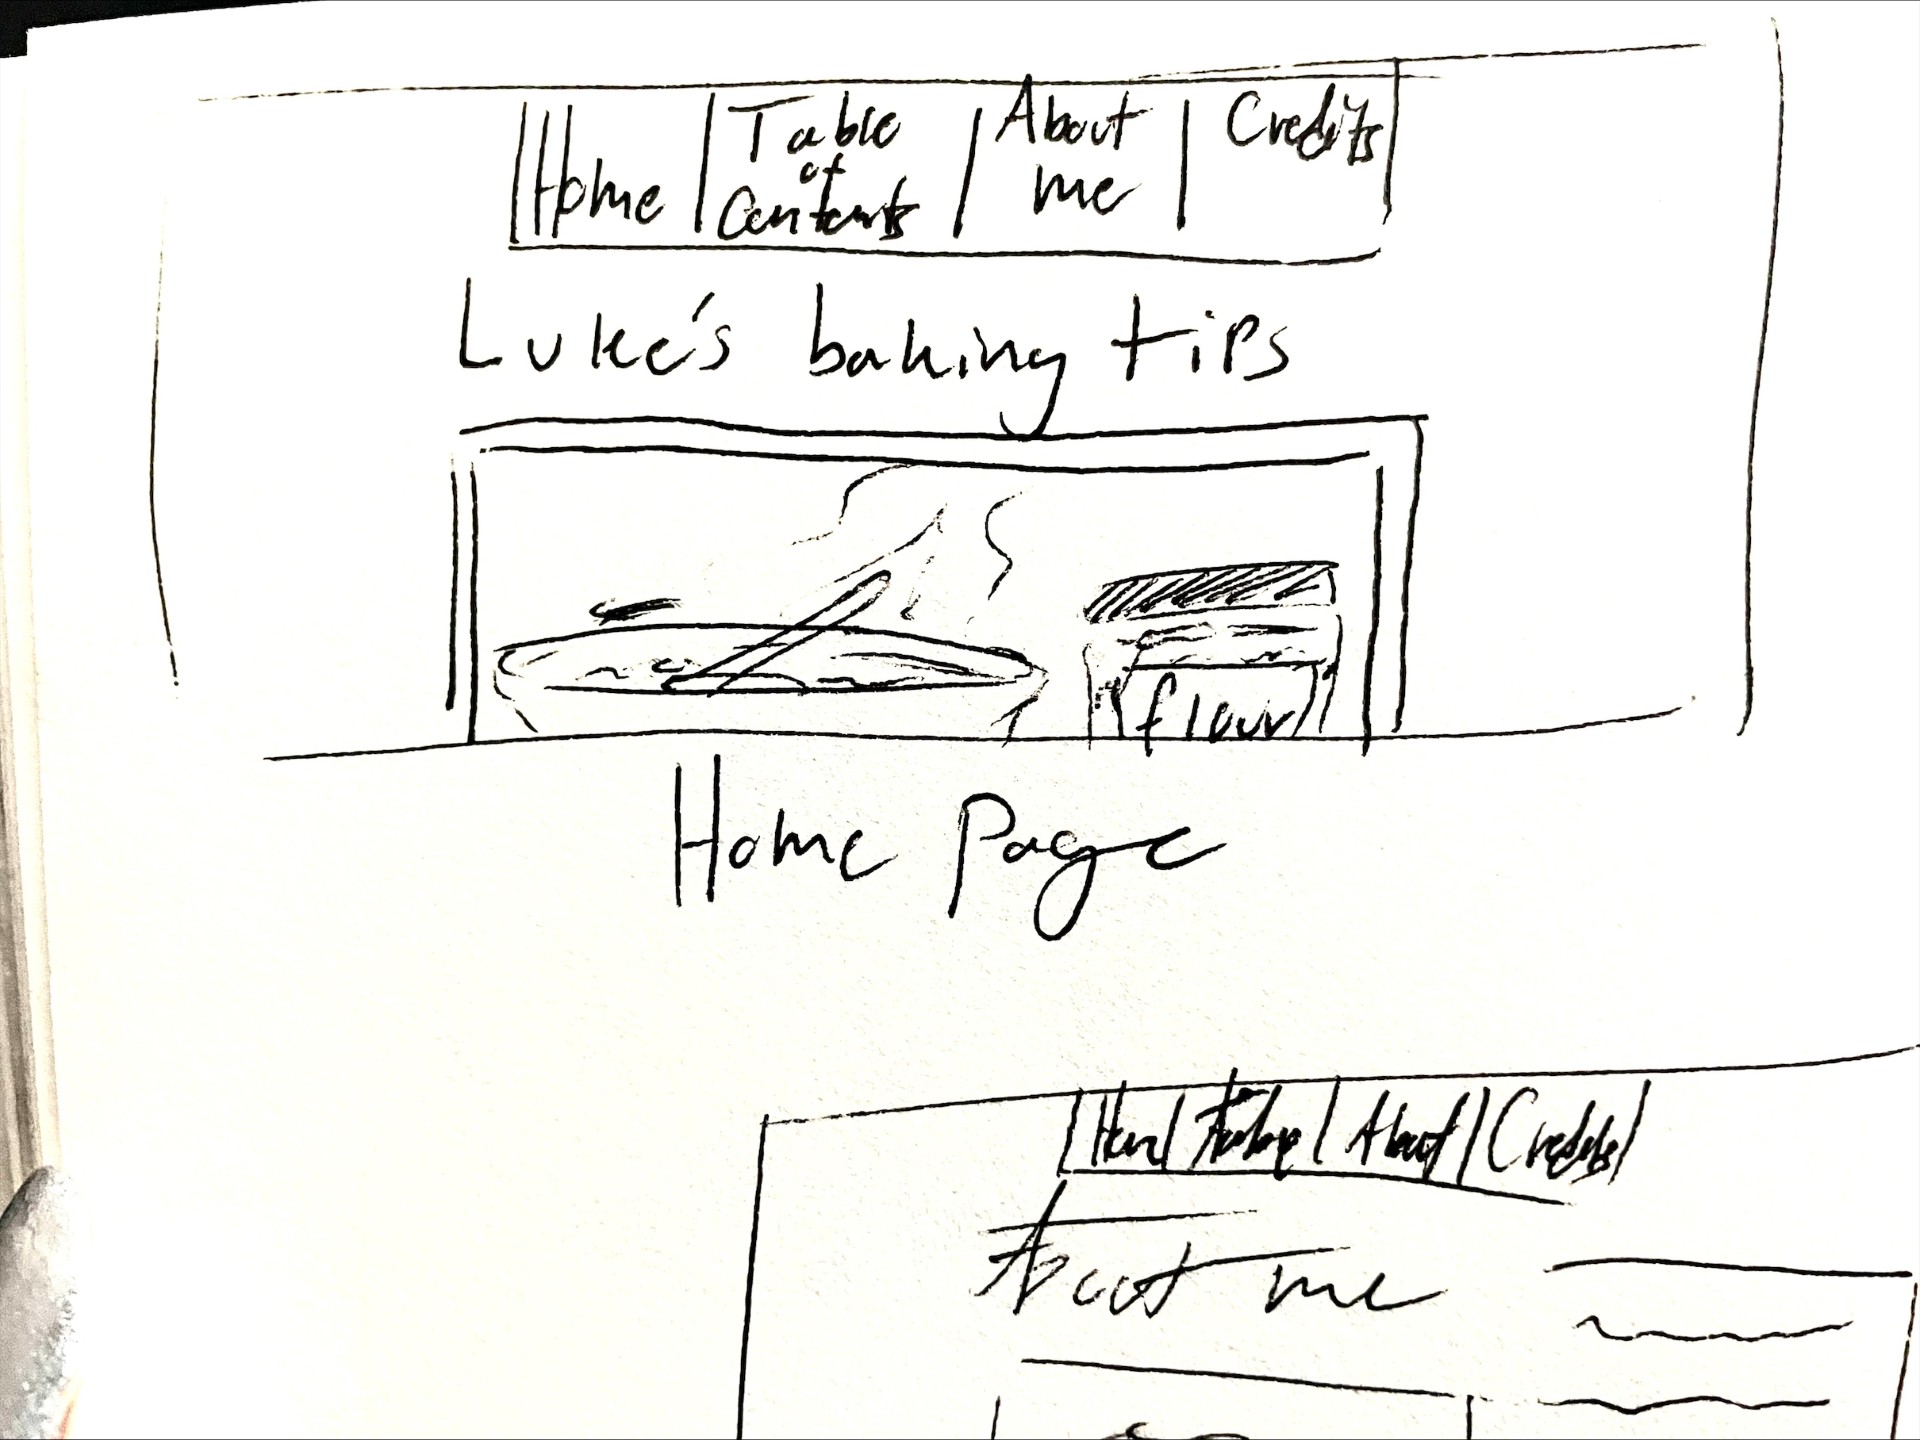 Home | Table of Contents | About me | Credits
Luke's baking tips
flour
Home Page
About | Credits
About me